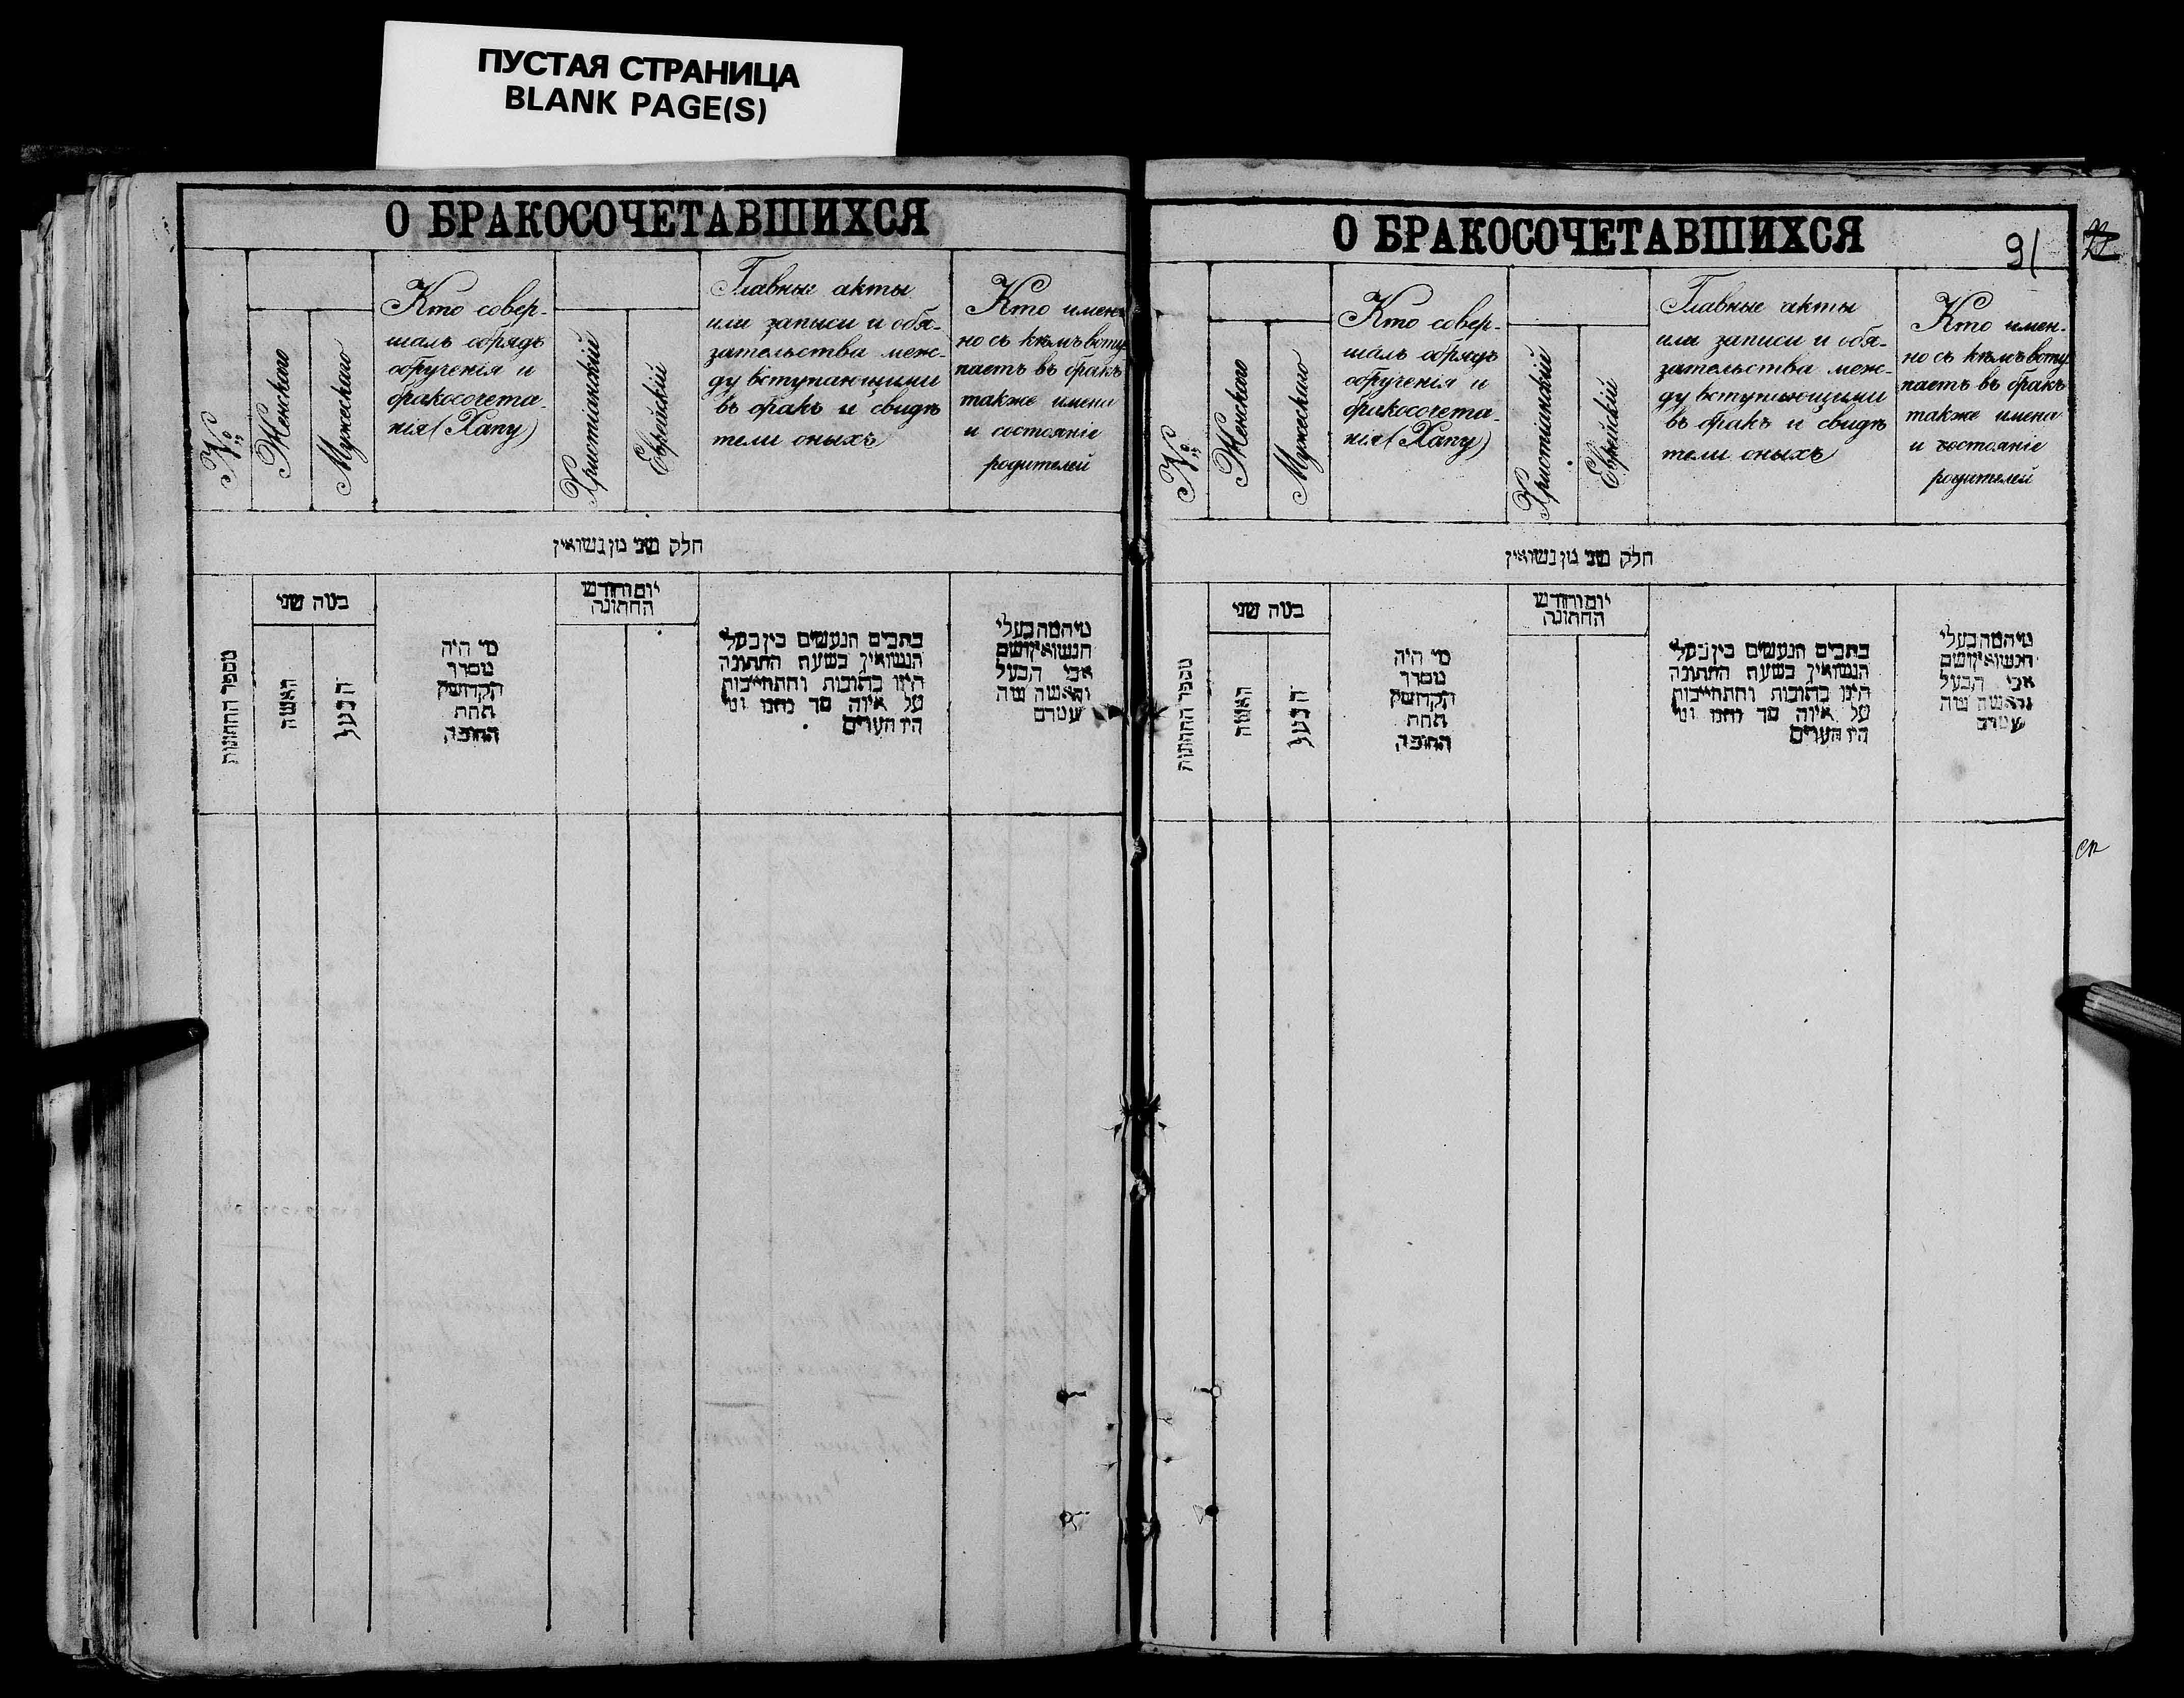 ПУСТАЯ СТРАНИЦА
BLANK PAGE(S)
О БРАКОСОЧЕТАВШИХСЯ
№
Женскаго
Мужескаго
Кто совер-
шалъ обрядъ
обрученія и
бракосочета-
нія (Хапу)
Христіанскій
Еврейскій
Главные акты
или записи и обя-
зательства меж-
ду вступающими
въ бракъ и свидѣ
тели оныхъ
Кто имен
но съ кѣмъ всту
паетъ въ бракъ
также имена
и состояніе
родителей
חלק שני מן נשואין
מספר החתונות
בטה שני
האשה
הבעל
מי היה
מסדר
הקדושין
תחת
החופה
יום וחודש
החתונה
כתבים הנעשים בין בעלי
הנשואין בשעת החתונה
היינו כתובות והתחייבות
על איזה סך נתנו ומי
היו העדים
מי המה בעלי
הנשואין ושם
אבי הבעל
והאשה מה
О БРАКОСОЧЕТАВШИХСЯ
91
№
Женскаго
Мужескаго
Кто совер-
шалъ обрядъ
обрученія и
бракосочета-
нія (Хапу)
Христіанскій
Еврейскій
Главные акты
или записи и обя-
зательства меж-
ду вступающими
въ бракъ и свидѣ
тели оныхъ
Кто имен-
но съ кѣмъ всту
паетъ въ бракъ
также имена
и состояніе
родителей
חלק שני מן נשואין
מספר החתונות
בטה שני
האשה
הבעל
מי היה
מסדר
הקדושין
תחת
החופה
יום וחודש
החתונה
כתבים הנעשים בין בעלי
הנשואין בשעת החתונה
היינו כתובות והתחייבות
על איזה סך נתנו ומי
היו העדים
מי המה בעלי
הנשואין ושם
אבי הבעל
והאשה מה